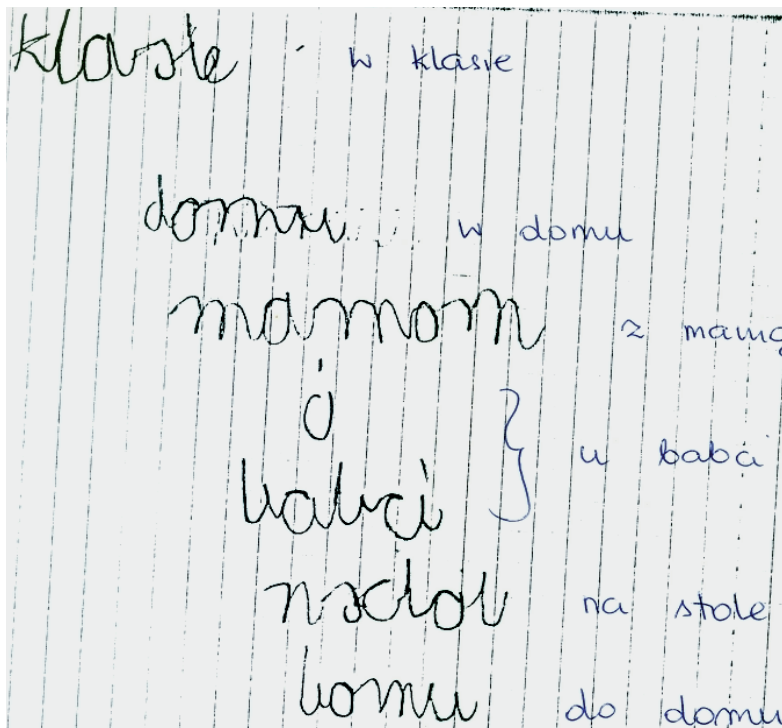 klasie w klasie
domu w domu
mamom z mamą
ó
babci } u baba
na stole
bomu do domu